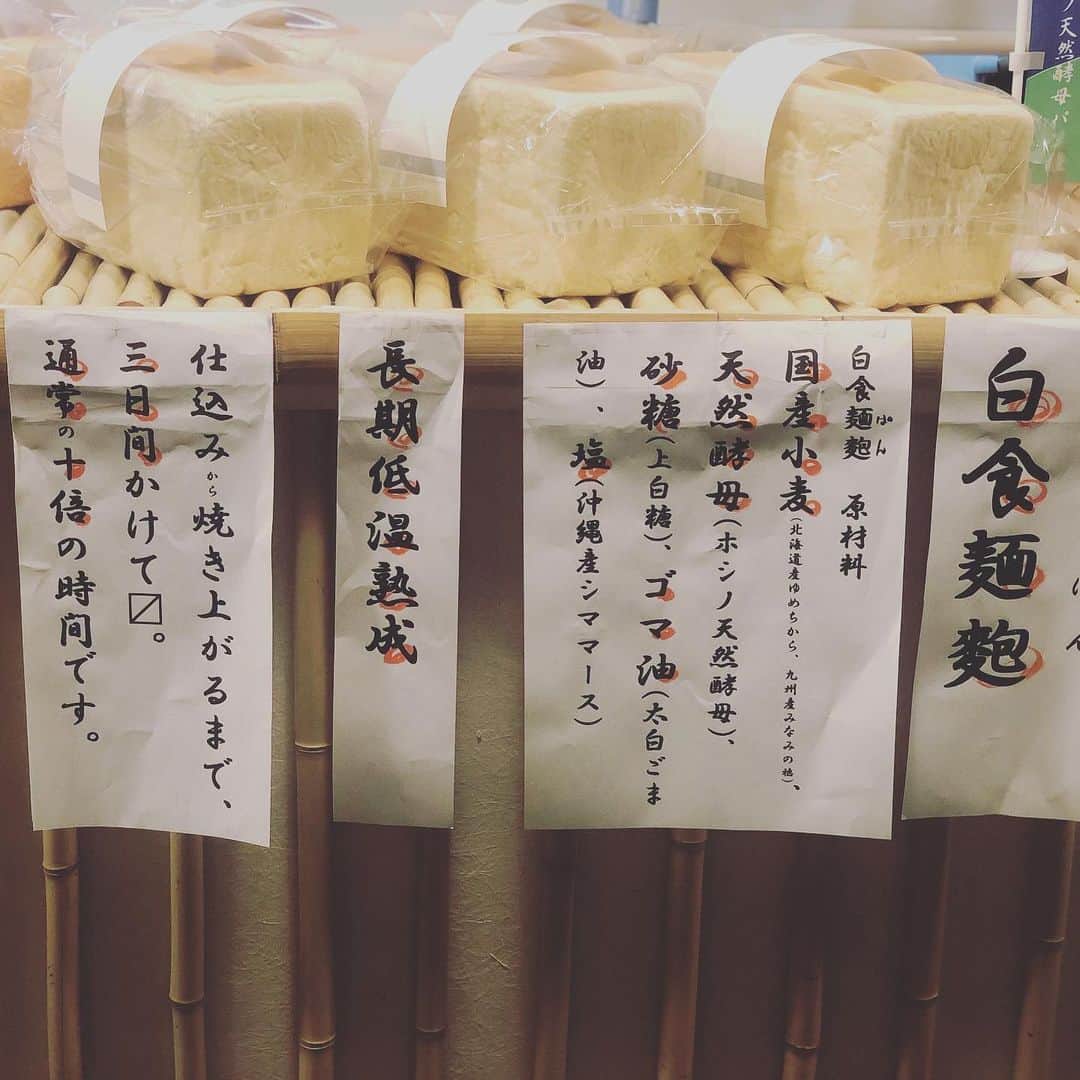 白食麺麭
白食麺麭 原材料
ぷん
国産小麦(北海道産ゆめちから、九州産みなみの穂)、
天然酵母(ホシノ天然酵母)、
砂糖(上白糖)、ゴマ油(太白ごま
油)、塩(沖縄産シママース)
長期低温熟成
仕込みから焼き上がるまで、
三日間かけて〼。
通常の十倍の時間です。
ノ天然酵母パ